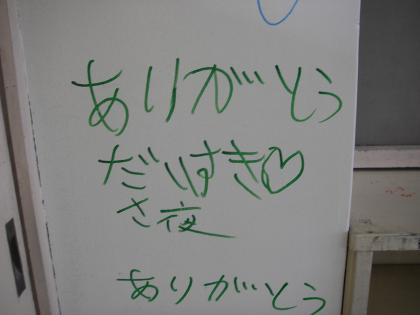 ありがとう
だいすき♡
さ夜
ありがとう